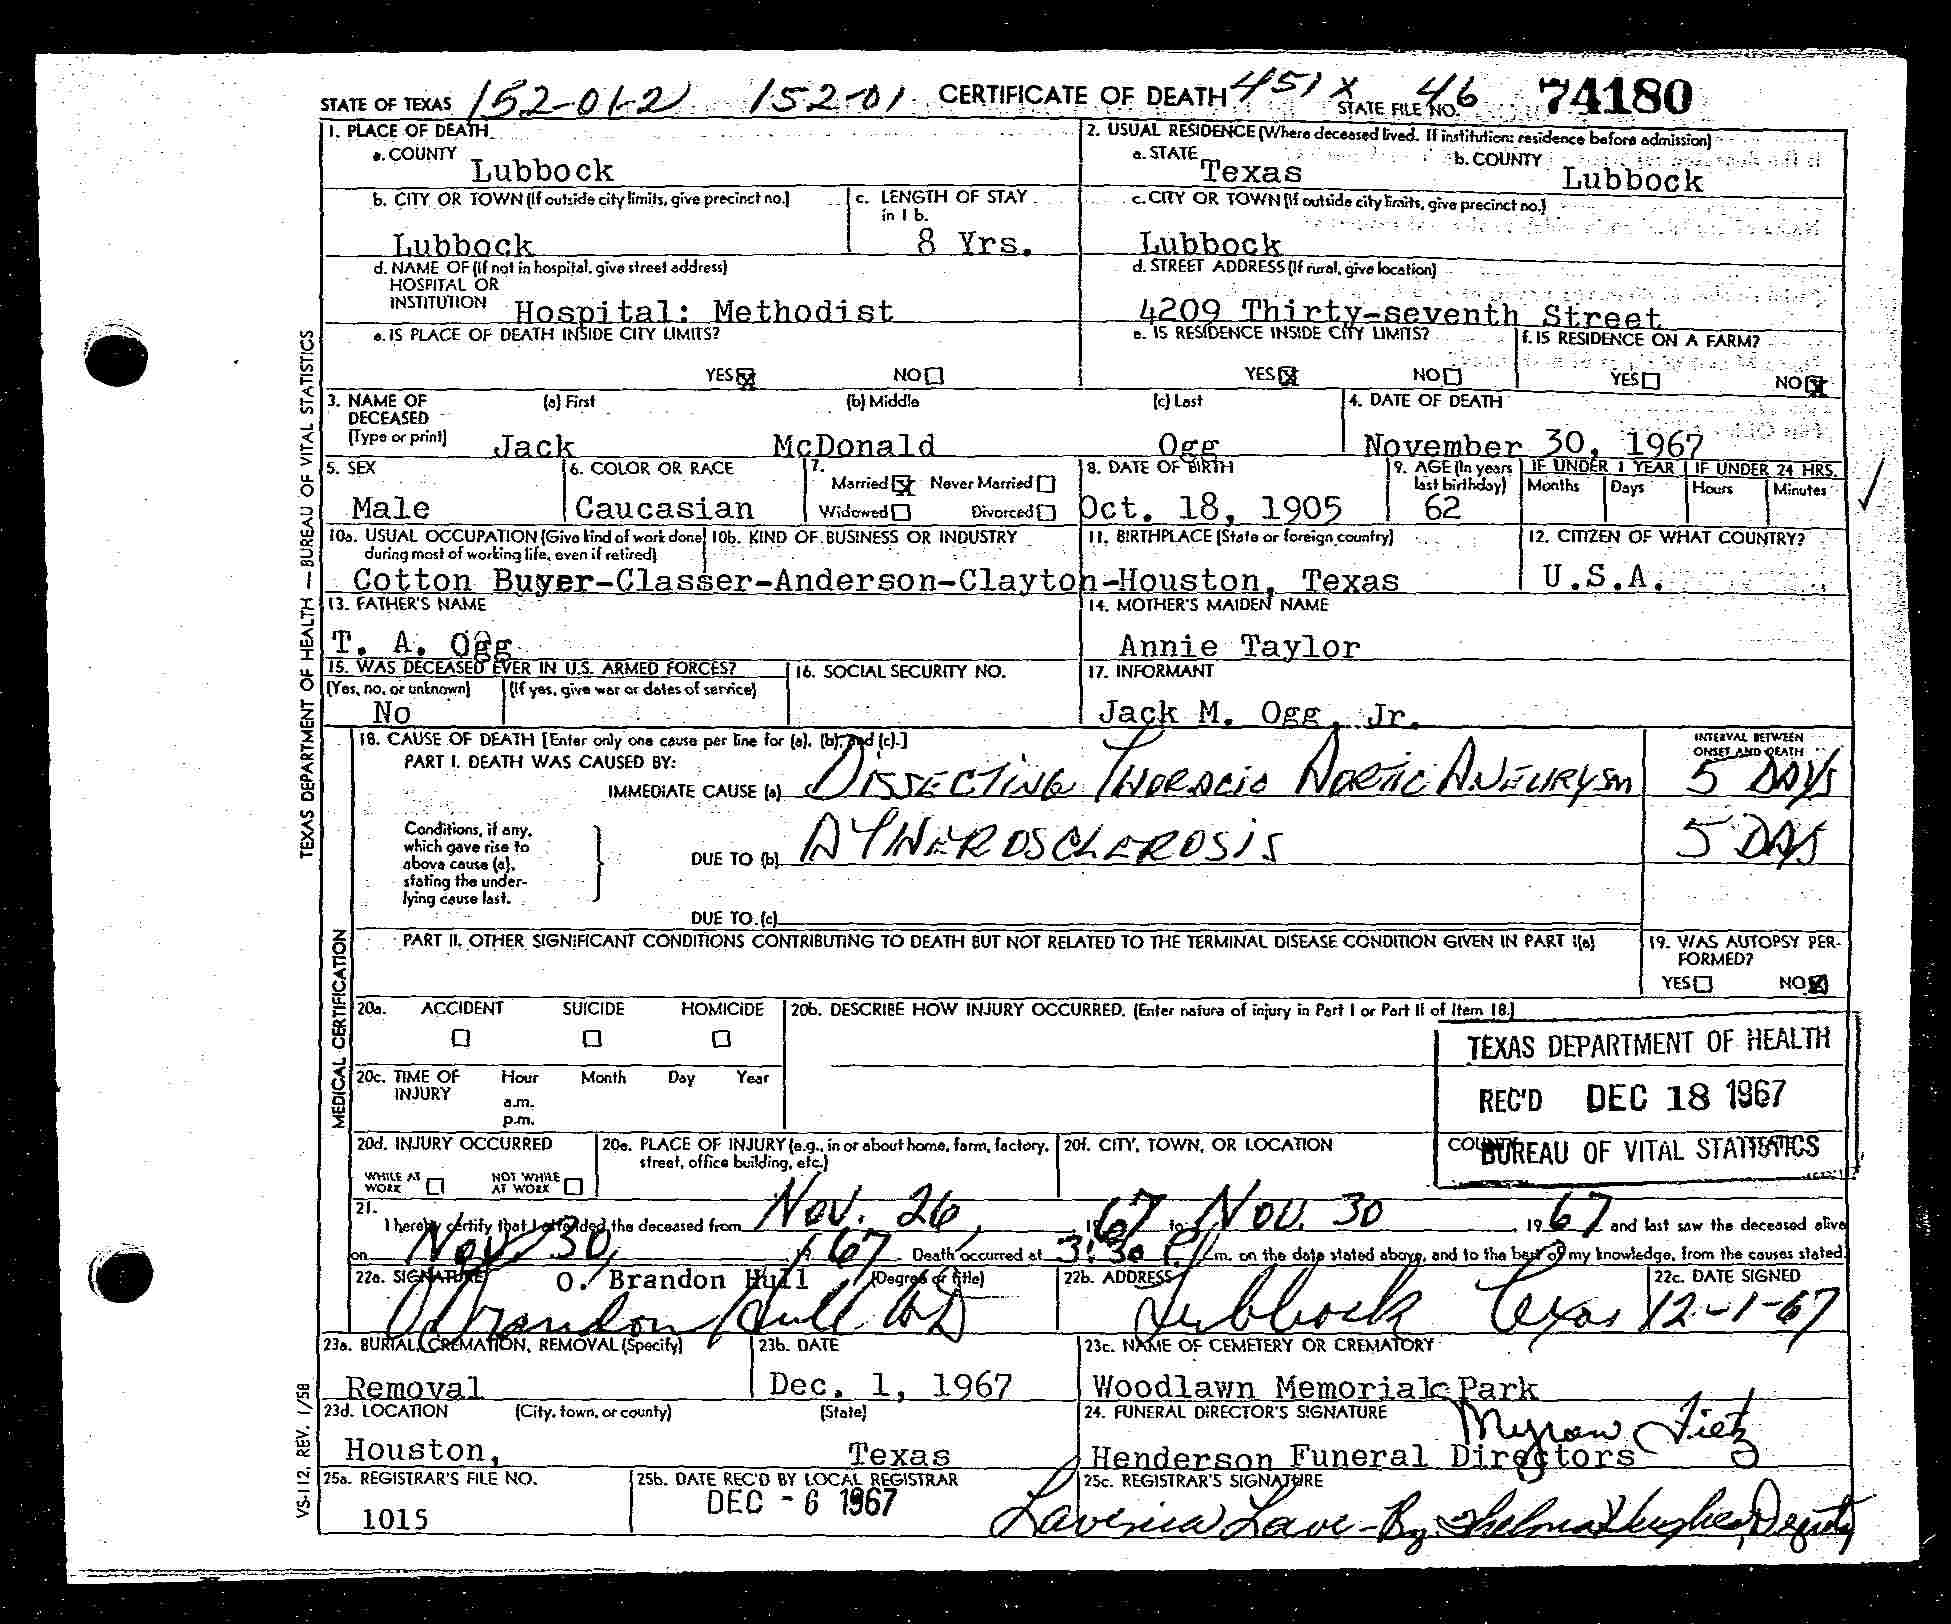 STATE OF TEXAS 152-01-2 152-01 CERTIFICATE OF DEATH 451 X 46 STATE FILE NO. 74180
1. PLACE OF DEATH
a. COUNTY Lubbock
2. USUAL RESIDENCE (Where deceased lived. If institution: residence before admission)
a. STATE Texas b. COUNTY Lubbock
b. CITY OR TOWN (If outside city limits, give precinct no.) Lubbock
c. LENGTH OF STAY in 1 b. 8 Yrs.
c. CITY OR TOWN (If outside city limits, give precinct no.) Lubbock
d. NAME OF (If not in hospital, give street address)
HOSPITAL OR
INSTITUTION Hospital: Methodist
d. STREET ADDRESS (If rural, give location)
4209 Thirty-seventh Street
e. IS PLACE OF DEATH INSIDE CITY LIMITS?
YES X NO
e. IS RESIDENCE INSIDE CITY LIMITS?
YES X NO
f. IS RESIDENCE ON A FARM?
YES NO X
3. NAME OF DECEASED (Type or print)
(a) First (b) Middle (c) Last
Jack McDonald Ogg
4. DATE OF DEATH
November 30, 1967
5. SEX
Male
6. COLOR OR RACE
Caucasian
7. Married X Never Married
Widowed Divorced
8. DATE OF BIRTH
Oct. 18, 1905
9. AGE (In years last birthday)
62
IF UNDER 1 YEAR IF UNDER 24 HRS.
Months Days Hours Minutes
10a. USUAL OCCUPATION (Give kind of work done during most of working life, even if retired)
10b. KIND OF BUSINESS OR INDUSTRY
11. BIRTHPLACE (State or foreign country)
12. CITIZEN OF WHAT COUNTRY?
Cotton Buyer-Classer-Anderson-Clayton-Houston, Texas U.S.A.
13. FATHER'S NAME
T. A. Ogg
14. MOTHER'S MAIDEN NAME
Annie Taylor
15. WAS DECEASED EVER IN U.S. ARMED FORCES?
(Yes, no, or unknown) (If yes, give war or dates of service)
No
16. SOCIAL SECURITY NO.
17. INFORMANT
Jack M. Ogg, Jr.
18. CAUSE OF DEATH [Enter only one cause per line for (a), (b), and (c).]
PART I. DEATH WAS CAUSED BY:
INTERVAL BETWEEN ONSET AND DEATH
IMMEDIATE CAUSE (a) DISSECTING THORACIC AORTIC ANEURYSM 5 DAYS
Conditions, if any,
which gave rise to
above cause (a),
stating the under-
lying cause last.
DUE TO (b) ATHEROSCLEROSIS 5 DAYS
DUE TO (c)
PART II. OTHER SIGNIFICANT CONDITIONS CONTRIBUTING TO DEATH BUT NOT RELATED TO THE TERMINAL DISEASE CONDITION GIVEN IN PART I(a)
19. WAS AUTOPSY PER-
FORMED?
YES NO X
20a. ACCIDENT SUICIDE HOMICIDE
20b. DESCRIBE HOW INJURY OCCURRED. (Enter nature of injury in Part I or Part II of Item 18.)
TEXAS DEPARTMENT OF HEALTH
REC'D DEC 18 1967
BUREAU OF VITAL STATISTICS
20c. TIME OF INJURY Hour Month Day Year
a.m.
p.m.
20d. INJURY OCCURRED
WHILE AT WORK NOT WHILE AT WORK
20e. PLACE OF INJURY (e.g., in or about home, farm, factory,
street, office building, etc.)
20f. CITY, TOWN, OR LOCATION COUNTY
21.
I hereby certify that I attended the deceased from Nov. 26, 1967 to Nov. 30, 1967 and last saw the deceased alive
on Nov 30, 1967. Death occurred at 3:30 P.m. on the date stated above, and to the best of my knowledge, from the causes stated.
22a. SIGNATURE O. Brandon Hull (Degree or title)
O Brandon Hull MD
22b. ADDRESS
Lubbock Texas
22c. DATE SIGNED
12-1-67
23a. BURIAL, CREMATION, REMOVAL (Specify)
Removal
23b. DATE
Dec. 1, 1967
23c. NAME OF CEMETERY OR CREMATORY
Woodlawn Memorial Park
23d. LOCATION (City, town, or county) (State)
Houston, Texas
24. FUNERAL DIRECTOR'S SIGNATURE Myron Fietz
Henderson Funeral Directors
25a. REGISTRAR'S FILE NO.
1015
25b. DATE REC'D BY LOCAL REGISTRAR
DEC - 6 1967
25c. REGISTRAR'S SIGNATURE
Lavenia Lowe - By Thelma Hughes, Deputy
TEXAS DEPARTMENT OF HEALTH — BUREAU OF VITAL STATISTICS
MEDICAL CERTIFICATION
VS-112, REV. 1/58